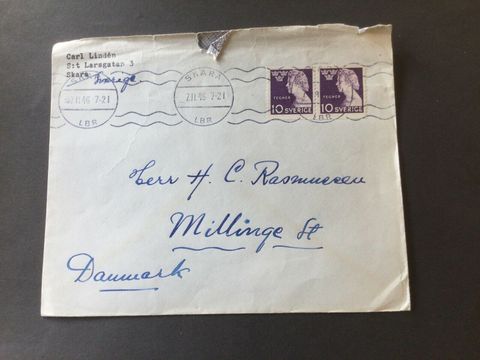 Carl Lindén
S:t Larsgatan 3
Skara
Sverige
SKARA
7.11.46 7-21
LBR
SKARA
7.11.46 7-21
LBR
TEGNÉR
10 SVERIGE
TEGNÉR
10 SVERIGE
Herr H. C. Rasmussen
Millinge St
Danmark